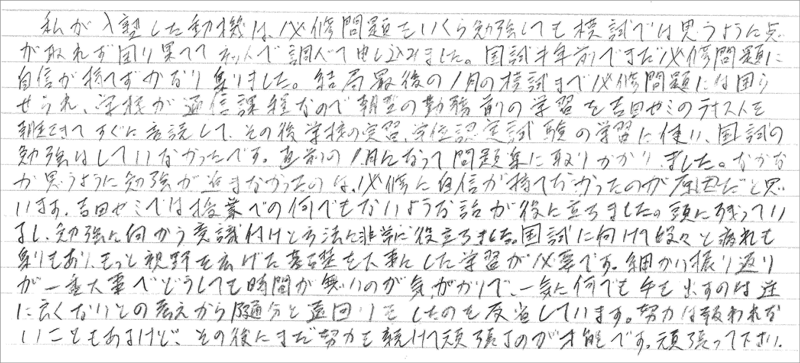 私が入塾した動機は、必修問題をいくら勉強しても模試では思うように点
が取れず困り果ててネットで調べて申し込みました。国試半年前でまだ必修問題に
自信が持てずかなり焦りました。結局最後の1月の模試まで必修問題には困ら
せられ、学校が通信課程なので朝型の勤務前の学習を吉田ゼミのテキストを
朝起きてすぐに音読して、その後学校の学習、学位認定試験の学習に使い、国試の
勉強はしていなかったです。直前の1月になって問題集に取りかかりました。なかな
か思うように勉強が進まなかったのは、必修に自信が持てなかったのが原因だと思
います。吉田ゼミでは授業での何でもないような話が役に立ちました。頭に残ってい
るし、勉強に向かう意識付けと方法に非常に役立ちました。国試に向けて段々と疲れも
焦りもあり、もっと視野を広げた基礎を大事にした学習が必要です。細かい振り返り
が一番大事でどうしても時間が無いのが気がかりで、一気に何でも手を出すのは逆
に良くないとの考えから随分と遠回りをしたのを反省しています。努力は報われな
いこともあるけど、その後にまだ努力を続けて頑張るのが才能です。頑張って下さい。